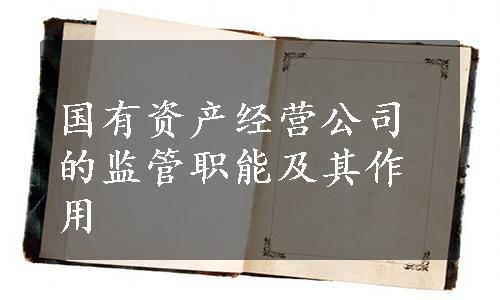 国有资产经营公司
的监管职能及其作
用